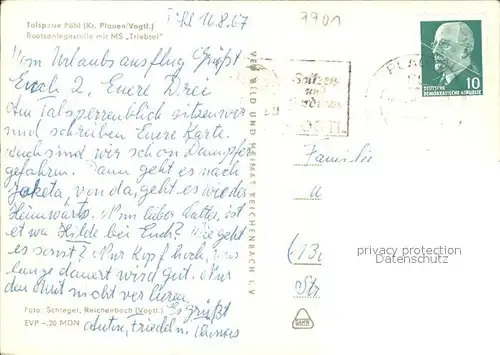 Talsperre Pöhl (Kr. Plauen/Vogtl.)
Bootsanlegestelle mit MS „Triebtal"
Pöhl 16.8.67
7901
Vom Urlaubsausflug Grüßt
Euch 2, Euere Drei
Am Talsperrenblick sitzen wir
und schreiben Euere Karte.
Auch sind wir schon Dampfer
gefahren. Dann geht es nach
von da, geht es wieder
Heimwärts. Nun lieber ist
etwa Hilde bei Euch? Wie geht
es sonst? Nur Kopf hoch, was
lange dauert wird gut. Nur
den Mut nicht verlieren.
Es grüßt
Friedel u. Thomas
Foto: Schlegel, Reichenbach (Vogtl.)
EVP –,20 MDN
VEB BILD UND HEIMAT REICHENBACH I. V.
Spitzen
und
PLAUEN
DEUTSCHE
DEMOKRATISCHE REPUBLIK
10
Familie
Str
privacy protection
Datenschutz